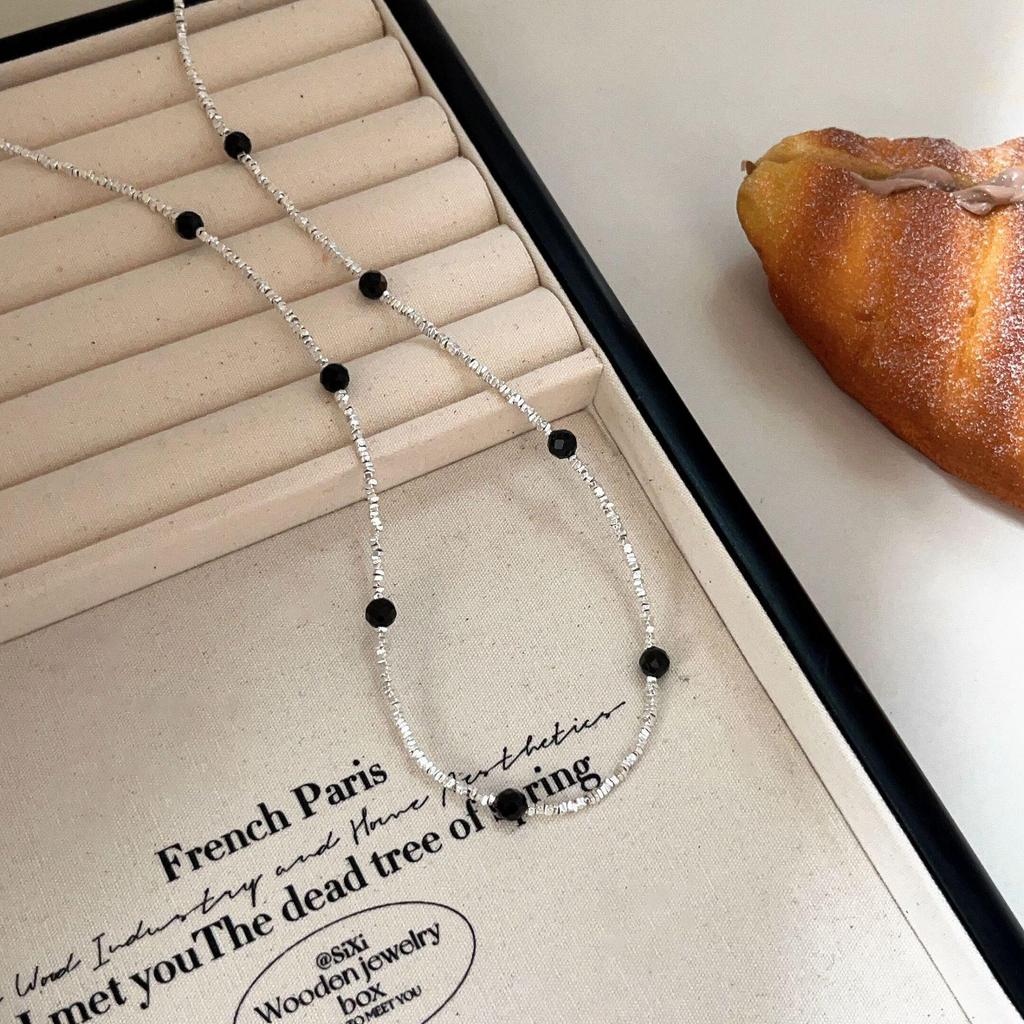 French Paris
Wood Industry and Home Aesthetics
I met youThe dead tree of spring
@SiXi
Wooden jewelry
box
TO MEET YOU